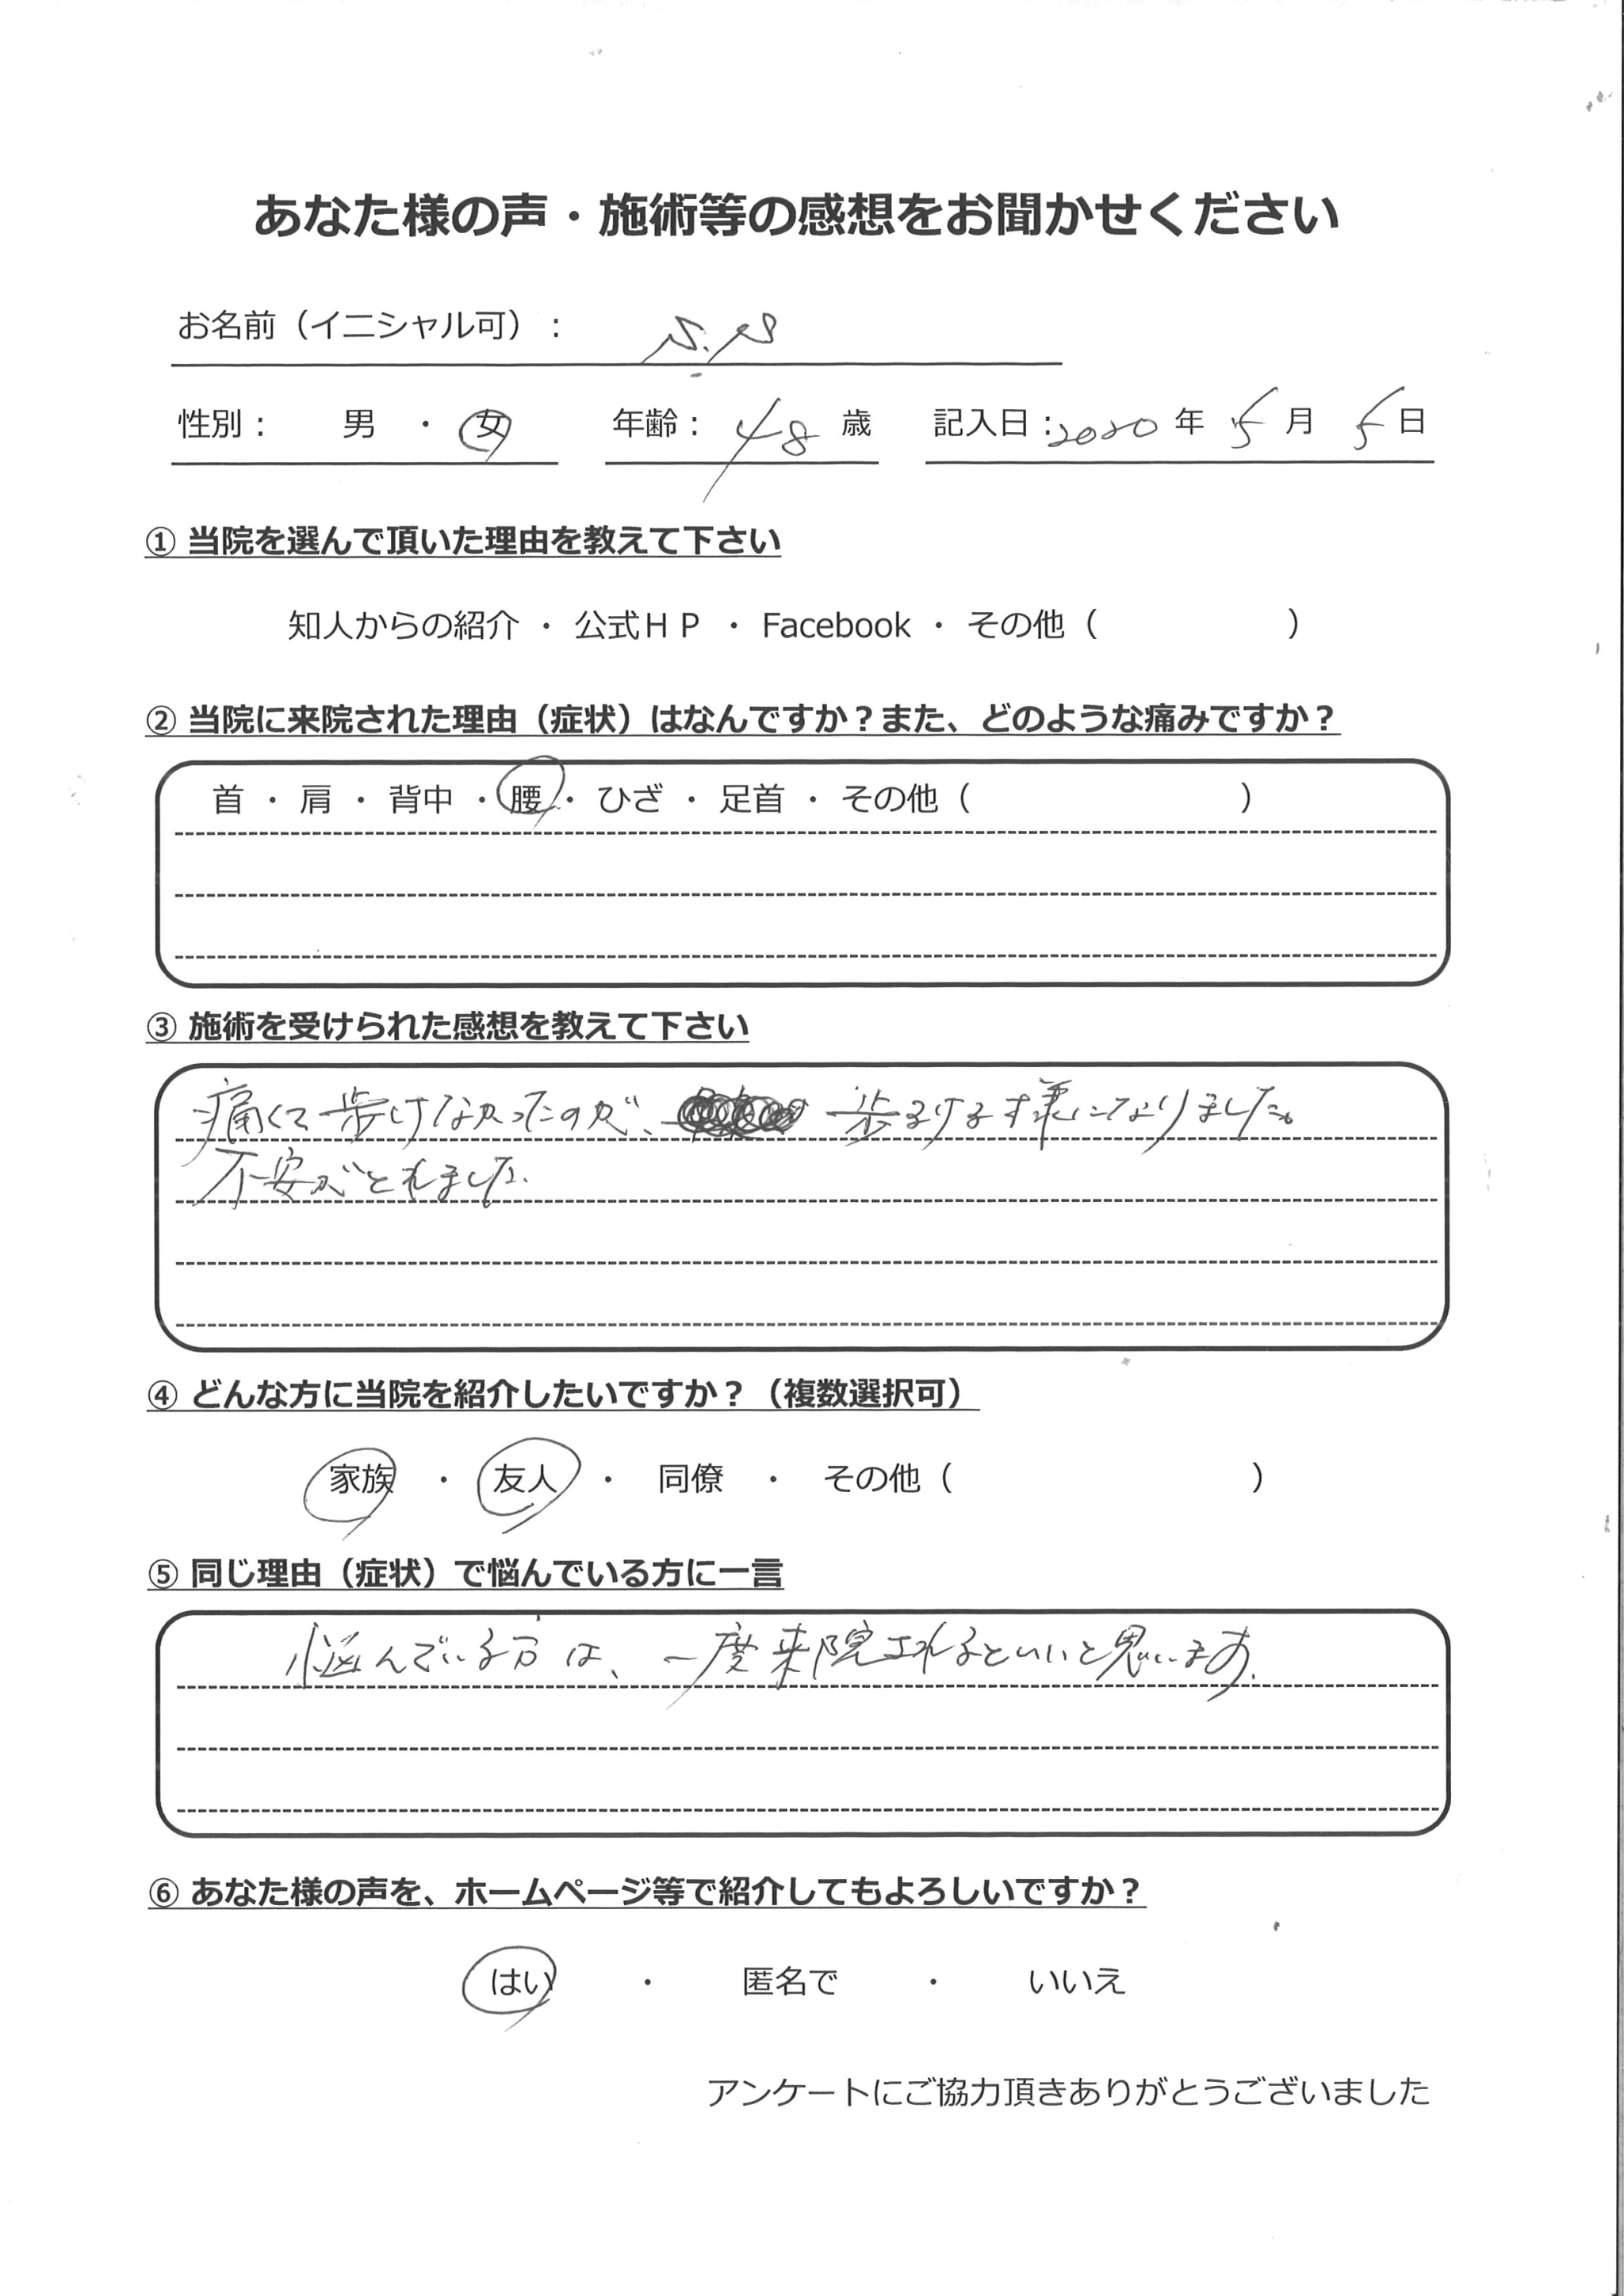 あなた様の声・施術等の感想をお聞かせください
お名前（イニシャル可）：
性別： 男 ・ 女 年齢： 48 歳 記入日：2020 年 5 月 5 日
① 当院を選んで頂いた理由を教えて下さい
知人からの紹介 ・ 公式ＨＰ ・ Facebook ・ その他（ ）
② 当院に来院された理由（症状）はなんですか？また、どのような痛みですか？
首 ・ 肩 ・ 背中 ・ 腰 ・ ひざ ・ 足首 ・ その他（ ）
③ 施術を受けられた感想を教えて下さい
痛くて歩けなかったのが、 歩るける様になりました。
不安がとれました.
④ どんな方に当院を紹介したいですか？（複数選択可）
家族 ・ 友人 ・ 同僚 ・ その他（ ）
⑤ 同じ理由（症状）で悩んでいる方に一言
悩んでいる方は、一度来院されるといいと思います.
⑥ あなた様の声を、ホームページ等で紹介してもよろしいですか？
はい ・ 匿名で ・ いいえ
アンケートにご協力頂きありがとうございました